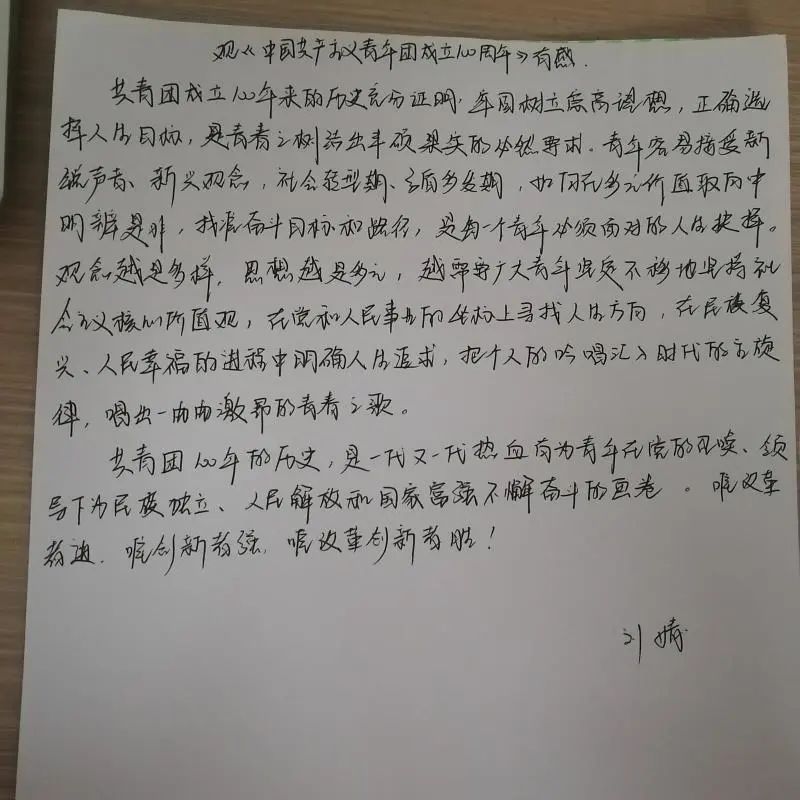 观《中国共产主义青年团成立100周年》有感.
共青团成立100年来的历史充分证明.年国树立崇高理想，正确选
择人生目标，是青春之树结出丰硕果实的必然要求。青年容易接受新
锐声音、新兴观念，社会转型期、矛盾多发期，如何在多元价值取向中
明辨是非，找准奋斗目标和路径，是每一个青年必须面对的人生抉择。
观念越是多样，思想越是多元，越需要广大青年坚定不移地坚持社
会主义核心价值观，在党和人民事业的坐标上寻找人生方向，在民族复
兴、人民幸福的进程中明确人生追求，把个人的吟唱汇入时代的主旋
律，唱出一曲曲激昂的青春之歌。
共青团100年的历史，是一代又一代热血有为青年在党的召唤、领
导下为民族独立、人民解放和国家富强不懈奋斗的画卷。唯改革
者进.唯创新者强，唯改革创新者胜！
刘婧